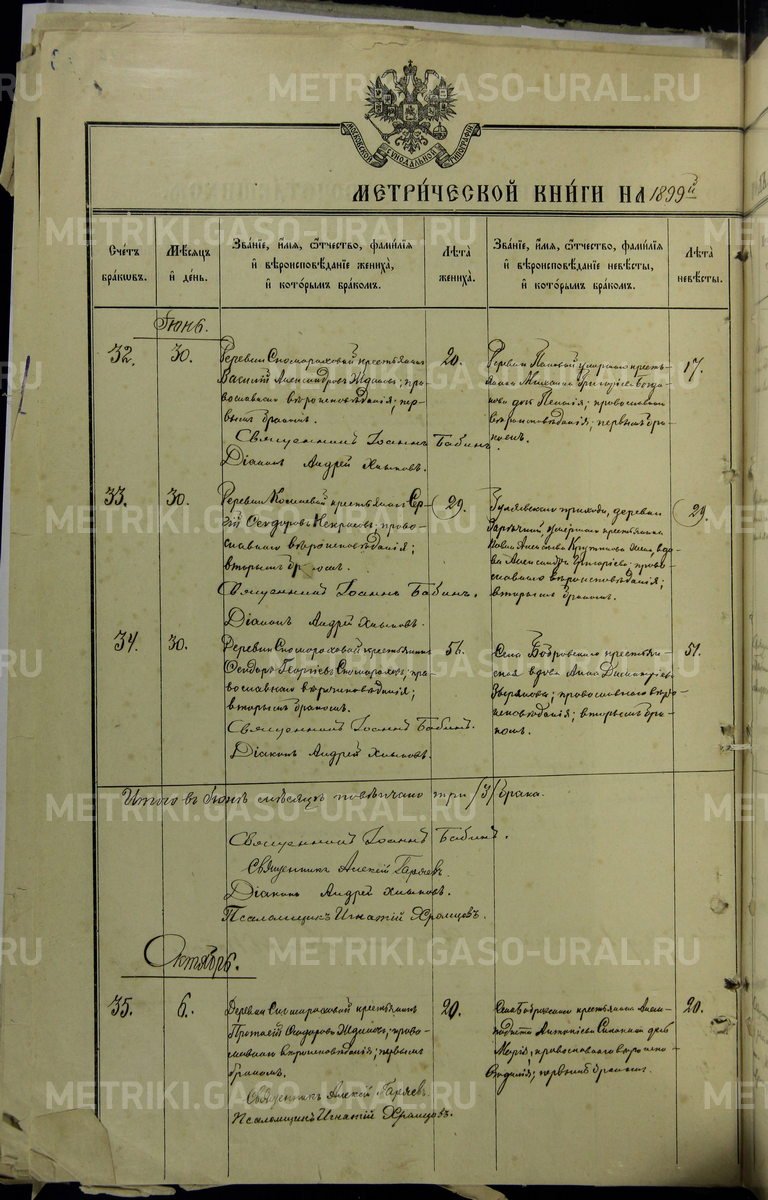 METRIKI.GASO-URAL.RU
МОСКОВСКОЙ СѴНОДАЛЬНОЙ ТИПОГРАФІИ
МЕТРИ́ЧЕСКОЙ КНИ́ГИ НА 1899й
Сче́тъ бра́кωвъ.
Мѣ́сяцъ и҆ де́нь.
Зва́нїе, и҆́мѧ, ѻ҆́тчество, фами́лїѧ и҆ вѣроисповѣ́данїе жениха̀, и҆ кото́рымъ бра́комъ.
Лѣ́та жениха̀.
Зва́нїе, и҆́мѧ, ѻ҆́тчество, фами́лїѧ и҆ вѣроисповѣ́данїе невѣ́сты, и҆ кото́рымъ бра́комъ.
Лѣ́та невѣ́сты.
Іюнь.
32.
30.
Деревни Скомороховой крестьянинъ
Александровъ Ждановъ; пра-
вославнаго вѣроисповѣданія; пер-
вымъ бракомъ.
Священникъ Іоаннъ Бабинъ.
Діаконъ Андрей Хлыновъ.
20.
Деревни умершаго кресть-
янина Михаила Григорьева Богда-
нова дочь православнаго
вѣроисповѣданія; первымъ бра-
комъ.
17.
33.
30.
Деревни крестьянинъ Сер-
гѣй Ѳеодоровъ Некрасовъ; право-
славнаго вѣроисповѣданія;
вторымъ бракомъ.
Священникъ Іоаннъ Бабинъ.
Діаконъ Андрей Хлыновъ.
29.
прихода, деревни
умершаго крестьянина
жена, вдо-
ва Александра Григорьева; право-
славнаго вѣроисповѣданія;
вторымъ бракомъ.
29.
34.
30.
Деревни Скомороховой крестьянинъ
Ѳеодоръ Георгіевъ Скомороховъ; пра-
вославнаго вѣроисповѣданія;
вторымъ бракомъ.
Священникъ Іоаннъ Бабинъ.
Діаконъ Андрей Хлыновъ.
56.
Села Бобровскаго крестьян-
ская вдова Анна Димитріева
Зырянова; православнаго вѣро-
исповѣданія; вторымъ бра-
комъ.
51.
Итого въ Іюнѣ мѣсяцѣ повѣнчано три /3/ брака.
Священникъ Іоаннъ Бабинъ.
Священникъ Алексій Гаряевъ.
Діаконъ Андрей Хлыновъ.
Псаломщикъ Игнатій Храмцовъ.
Октябрь.
35.
6.
Деревни Скомороховой крестьянинъ
Протасій Ѳеодоровъ Ждановъ; право-
славнаго вѣроисповѣданія; первымъ
бракомъ.
Священникъ Алексій Гаряевъ.
Псаломщикъ Игнатій Храмцовъ.
20.
Села Бобровскаго крестьянина
Антоніева дочь
Марія, православнаго вѣроиспо-
вѣданія; первымъ бракомъ.
20.